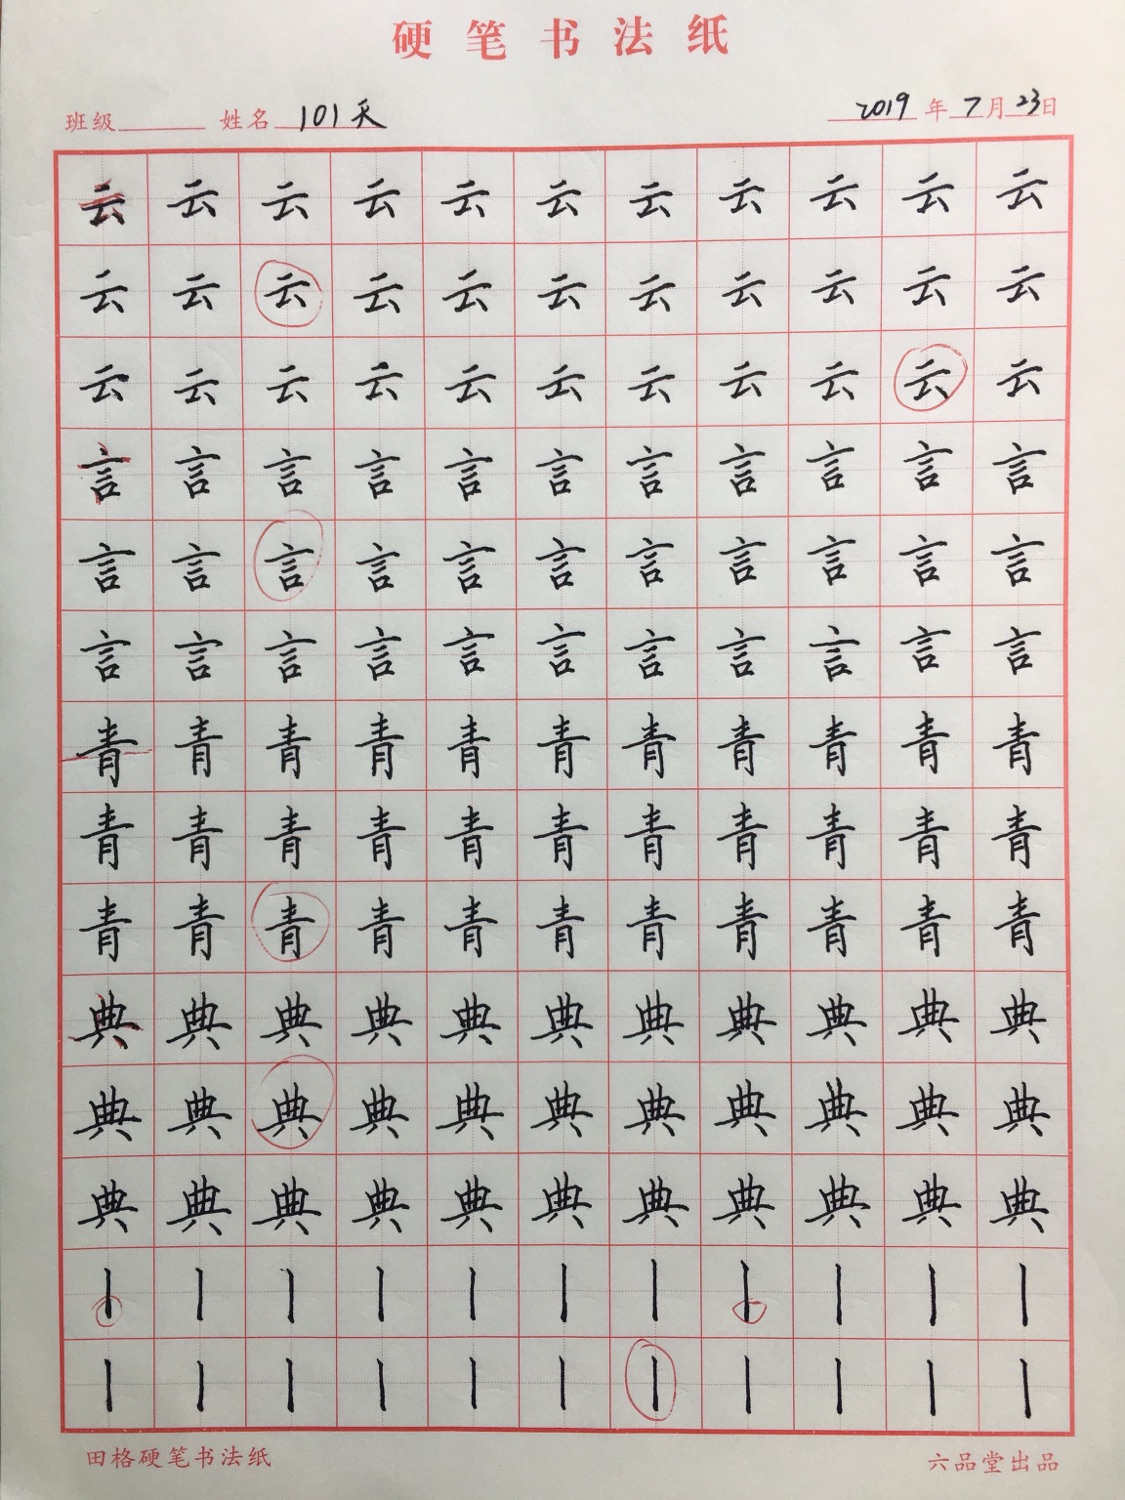 硬笔书法纸
班级 姓名 101天 2019年7月23日
云云云云云云云云云云云
云云云云云云云云云云云
云云云云云云云云云云云
言言言言言言言言言言言
言言言言言言言言言言言
言言言言言言言言言言言
青青青青青青青青青青青
青青青青青青青青青青青
青青青青青青青青青青青
典典典典典典典典典典典
典典典典典典典典典典典
典典典典典典典典典典典
丨丨丨丨丨丨丨丨丨丨丨
丨丨丨丨丨丨丨丨丨丨丨
田格硬笔书法纸 六品堂出品